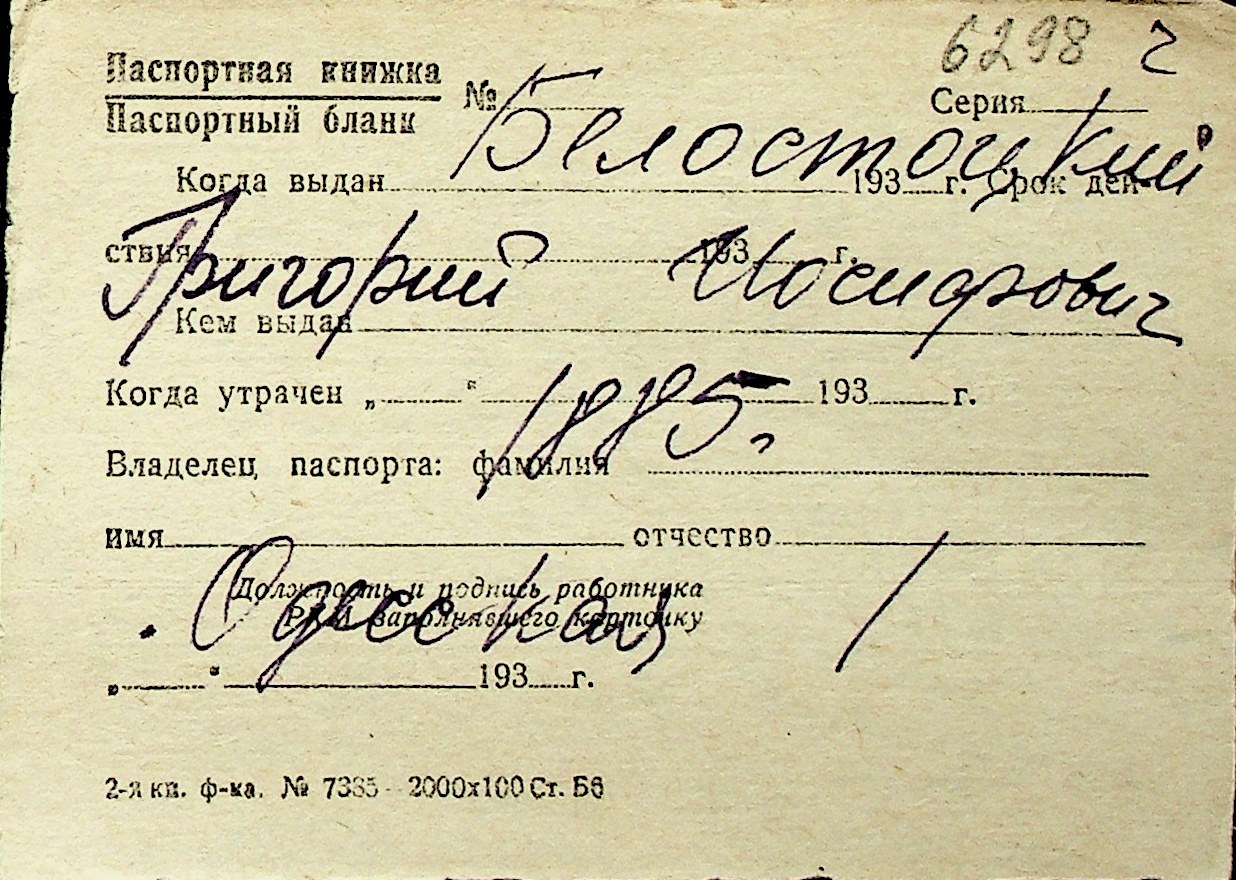 6298 2
Паспортная книжка
Паспортный бланк
№ Серия
Белостоцкий
Когда выдан 193 г. Срок дей-
ствия 193 г.
Григорий Иосифович
Кем выдан
Когда утрачен „ “ 193 г.
1885г
Владелец паспорта: фамилия
имя отчество
Должность и подпись работника
РКМ заполнявшего карточку
Одесская 1
„ “ 193 г.
2-я кн. ф-ка. № 7385 2000x100 Ст. Бб